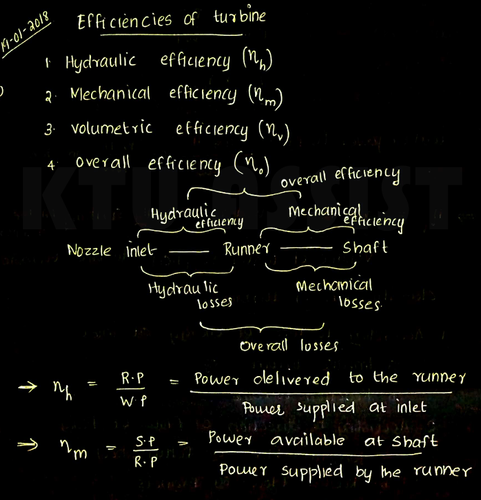 19-01-2018
Efficiencies of turbine
1. Hydraulic efficiency (η_h)
2. Mechanical efficiency (η_m)
3. volumetric efficiency (η_v)
4. overall efficiency (η_o)
overall efficiency
Hydraulic efficiency Mechanical efficiency
Nozzle inlet — Runner — Shaft
Hydraulic losses Mechanical losses
overall losses
→ η_h = R.P / W.P = Power delivered to the runner / Power supplied at inlet
→ η_m = S.P / R.P = Power available at shaft / Power supplied by the runner